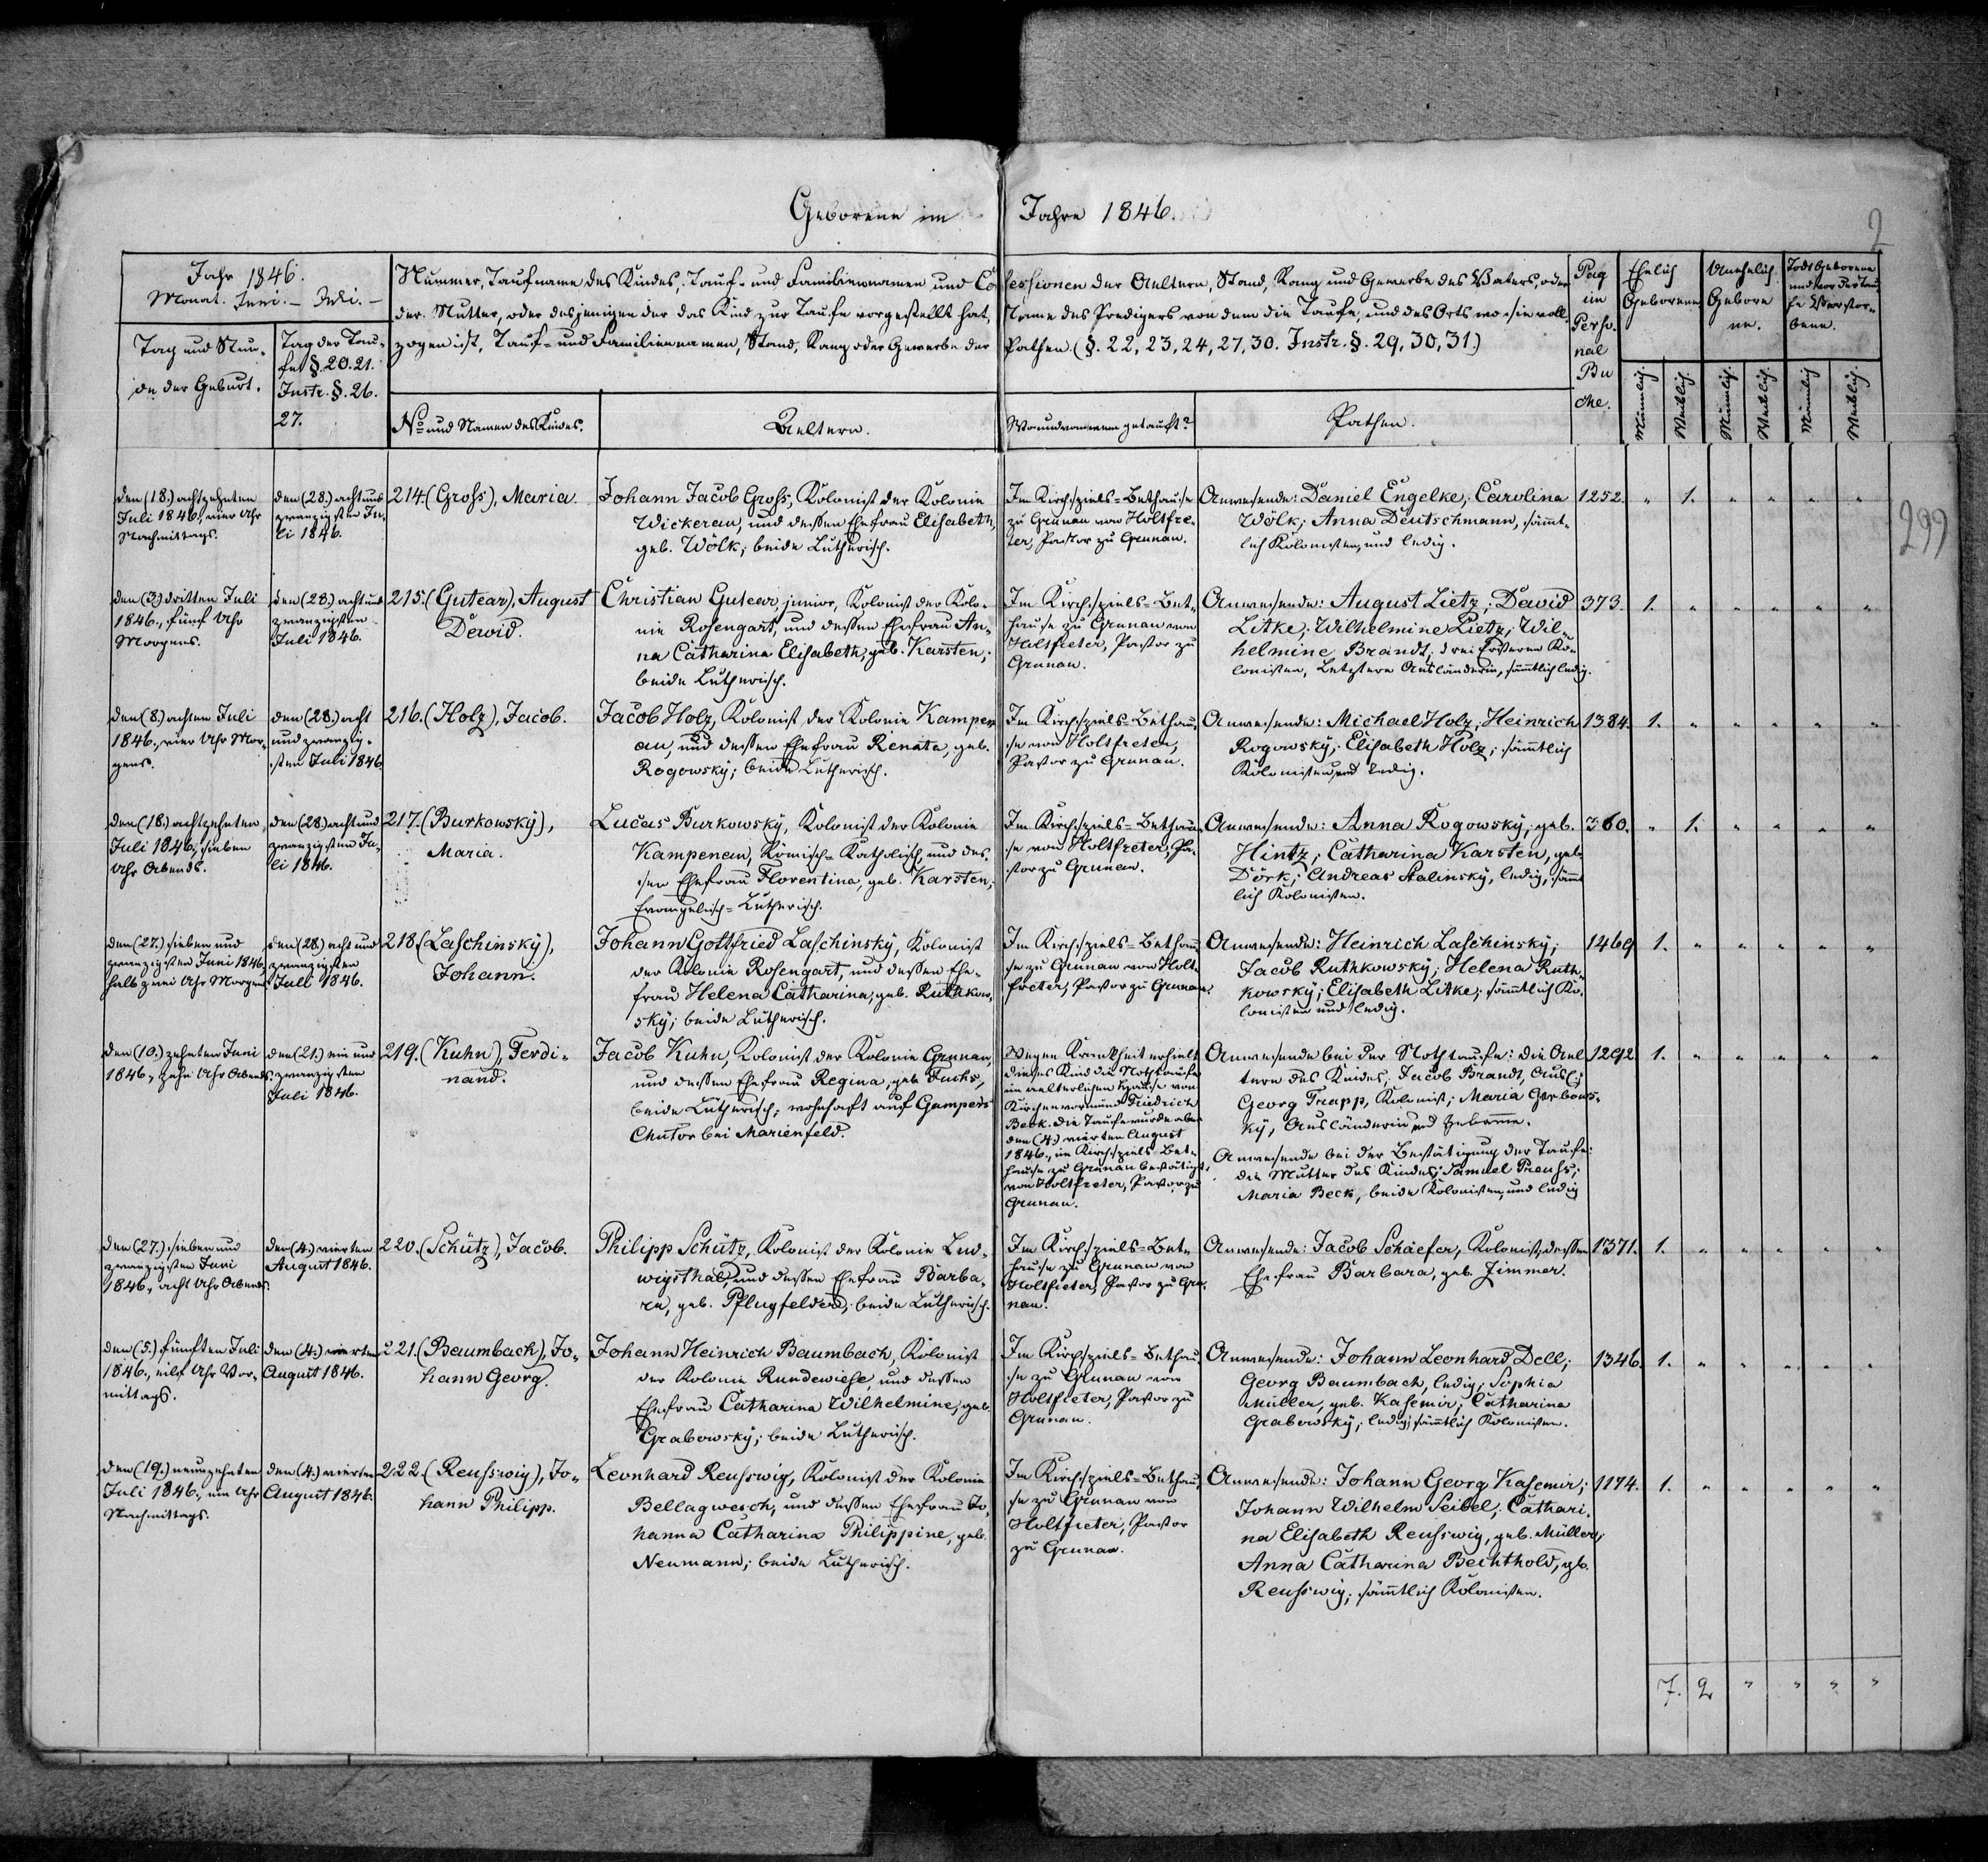 Geborene im Jahre 1846.
2
299
Jahr 1846.
Monat. Juni. – Juli. –
Tag und Stun-
de der Geburt.
Tag der Tau-
fe §. 20. 21.
Instr. §. 26.
27.
Nummer, Taufname des Kindes, Tauf- und Familiennamen und Confessionen der Aeltern, Stand, Rang und Gewerbe des Vaters, oder
der Mutter, oder desjenigen der das Kind zur Taufe vorgestellt hat, Name des Predigers von dem die Taufe, und des Orts wo sie voll-
zogen ist, Tauf- und Familiennamen, Stand, Rang oder Gewerbe der Pathen (§. 22, 23, 24, 27, 30. Instr. §. 29, 30, 31.)
No und Namen des Kindes.
Aeltern.
Wo und von wem getauft?
Pathen.
Pag
im
Perso-
nal
Bu
che.
Ehelich
Geborene
Unehelich
Gebore
ne.
Todt Geborene
und vor der Tau-
fe Verstor-
bene.
Männlich.
Weiblich.
Männlich.
Weiblich.
Männlich
Weiblich.
den (18.) achtzehnten
Juli 1846., vier Uhr
Nachmittags.
den (28.) acht und
zwanzigsten Ju-
li 1846.
214. (Gross), Maria.
Johann Jacob Gross, Kolonist der Kolonie
Wickerau, und dessen Ehefrau Elisabeth,
geb. Wölk; beide Lutherisch.
Im Kirchspiels-Bethause
zu Grunau von Holtfre-
ter, Pastor zu Grunau.
Anwesende: Daniel Engelke; Carolina
Wölk; Anna Deutschmann, sämt-
lich Kolonisten, und ledig.
1252. " 1. " " " "
den (3.) dritten Juli
1846., fünf Uhr
Morgens.
den (28.) acht und
zwanzigsten
Juli 1846.
215. (Gutear), August
Dewid.
Christian Gutear, junior, Kolonist der Kolo-
nie Rosengart, und dessen Ehefrau An-
na Catharina Elisabeth, geb. Karsten;
beide Lutherisch.
Im Kirchspiels-Bet-
hause zu Grunau von
Holtfreter, Pastor zu
Grunau.
Anwesende: August Lietz; David
Litke; Wilhelmine Lietz; Wil-
helmine Brandt; drei Ersteren Ko-
lonisten, Letztere Ausländerin, sämtlich ledig.
373. 1. " " " " "
den (8.) achten Juli
1846., vier Uhr Mor-
gens.
den (28.) acht
und zwanzig-
sten Juli 1846.
216. (Holz), Jacob.
Jacob Holz, Kolonist der Kolonie Kampen
au, und dessen Ehefrau Renata, geb.
Rogowsky; beide Lutherisch.
Im Kirchspiels-Bethau-
se von Holtfreter,
Pastor zu Grunau.
Anwesende: Michael Holz; Heinrich
Rogowsky; Elisabeth Holz; sämmtlich
Kolonisten und ledig.
1384. 1. " " " " "
den (18.) achtzehnten
Juli 1846., sieben
Uhr Abends.
den (28.) acht und
zwanzigsten Ju-
li 1846.
217. (Burkowsky),
Maria.
Lucas Burkowsky, Kolonist der Kolonie
Kampenau, Römisch-Katholisch, und des-
sen Ehefrau Florentina, geb. Karsten,
Evangelisch-Lutherisch.
Im Kirchspiels-Bethau-
se von Holtfreter, Pa-
stor zu Grunau.
Anwesende: Anna Rogowsky, geb.
Hintz; Catharina Karsten, geb.
Dörk; Andreas Stalinsky, ledig; sämt
lich Kolonisten.
360. " 1. " " " "
den (27.) sieben und
zwanzigsten Juni 1846.,
halb zwei Uhr Morgens.
den (28.) acht und
zwanzigsten
Juli 1846.
218. (Laschinsky),
Johann.
Johann Gottfried Laschinsky, Kolonist
der Kolonie Rosengart, und dessen Ehe-
frau Helena Catharina, geb. Ruthkow-
sky; beide Lutherisch.
Im Kirchspiels-Bethau-
se zu Grunau von Holt-
freter, Pastor zu Grunau.
Anwesende: Heinrich Laschinsky;
Jacob Ruthkowsky; Helena Ruth-
kowsky; Elisabeth Litke; sämtlich Ko-
lonisten und ledig.
1469 1. " " " " "
den (10.) zehnten Juni
1846., zehn Uhr Abends.
den (21.) ein und
zwanzigsten
Juli 1846.
219. (Kuhn), Ferdi-
nand.
Jacob Kuhn, Kolonist der Kolonie Grunau,
und dessen Ehefrau Regina, geb. Fuchs,
beide Lutherisch; wohnhaft auf Gampers
Chutor bei Marienfeld.
Wegen Krankheit erhielt
dieses Kind die Nothtaufe
im aelterlichen Hause von
Kirchenvormund Friedrich
Beck. die Taufe wurde aber
den (4.) vierten August
1846., im Kirchspiels-Bet-
hause zu Grunau bestätigt
von Holtfreter, Pastor zu
Grunau.
Anwesende bei der Nothtaufe: die Ael
tern des Kindes; Jacob Brandt, Ausl;
Georg Trapp, Kolonist; Maria Gerbows-
ky, Ausländerin und Hebamme.
Anwesende bei der Bestätigung der Taufe:
die Mutter des Kindes; Samuel Preuss;
Maria Beck, beide Kolonisten, und ledig
1292 1. " " " " "
den (27.) sieben und
zwanzigsten Juni
1846., acht Uhr Abends.
den (4.) vierten
August 1846.
220. (Schütz), Jacob.
Philipp Schütz, Kolonist der Kolonie Lud-
wigsthal, und dessen Ehefrau Barba-
ra, geb. Pflugfelder; beide Lutherisch.
Im Kirchspiels-Bet-
hause zu Grunau von
Holtfreter, Pastor zu Gru-
nau.
Anwesende: Jacob Schäefer, Kolonist, dessen
Ehefrau Barbara, geb. Zimmer.
1371. 1. " " " " "
den (5.) fünften Juli
1846., eilf Uhr Vor-
mittags.
den (4.) vierten
August 1846.
221. (Baumbach), Jo-
hann Georg.
Johann Heinrich Baumbach, Kolonist
der Kolonie Rundewiese, und dessen
Ehefrau Catharina Wilhelmine, geb.
Grabowsky; beide Lutherisch.
Im Kirchspiels-Bethau-
se zu Grunau von
Holtfreter, Pastor zu
Grunau.
Anwesende: Johann Leonhard Dell;
Georg Baumbach, ledig; Sophia
Müller, geb. Kasemir; Catharina
Grabowsky, ledig; sämtlich Kolonisten.
1346. 1. " " " " "
den (19.) neunzehnten
Juli 1846., ein Uhr
Nachmittags.
den (4.) vierten
August 1846.
222. (Reusswig), Jo-
hann Philipp.
Leonhard Reusswig, Kolonist der Kolonie
Bellagwesch, und dessen Ehefrau Jo-
hanna Catharina Philippine, geb.
Neumann; beide Lutherisch.
Im Kirchspiels-Bethau-
se zu Grunau von
Holtfreter, Pastor
zu Grunau.
Anwesende: Johann Georg Kasemir;
Johann Wilhelm Seibel; Cathari-
na Elisabeth Reusswig, geb. Müller;
Anna Catharina Bechthold, gb.
Reusswig; sämtlich Kolonisten.
1174. 1. " " " " "
7. 2 " " " "